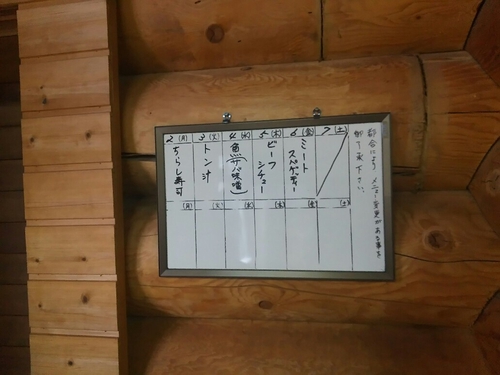 2 (月)
ちらし寿司
3 (火)
トン汁
4 (水)
魚(サバ味噌)
5 (木)
ビーフ
シチュー
6 (金)
ミート
スパゲッティー
7 (土)
(月)
(火)
(水)
(木)
(金)
(土)
都合により メニュー変更がある事を
御了承下さい。